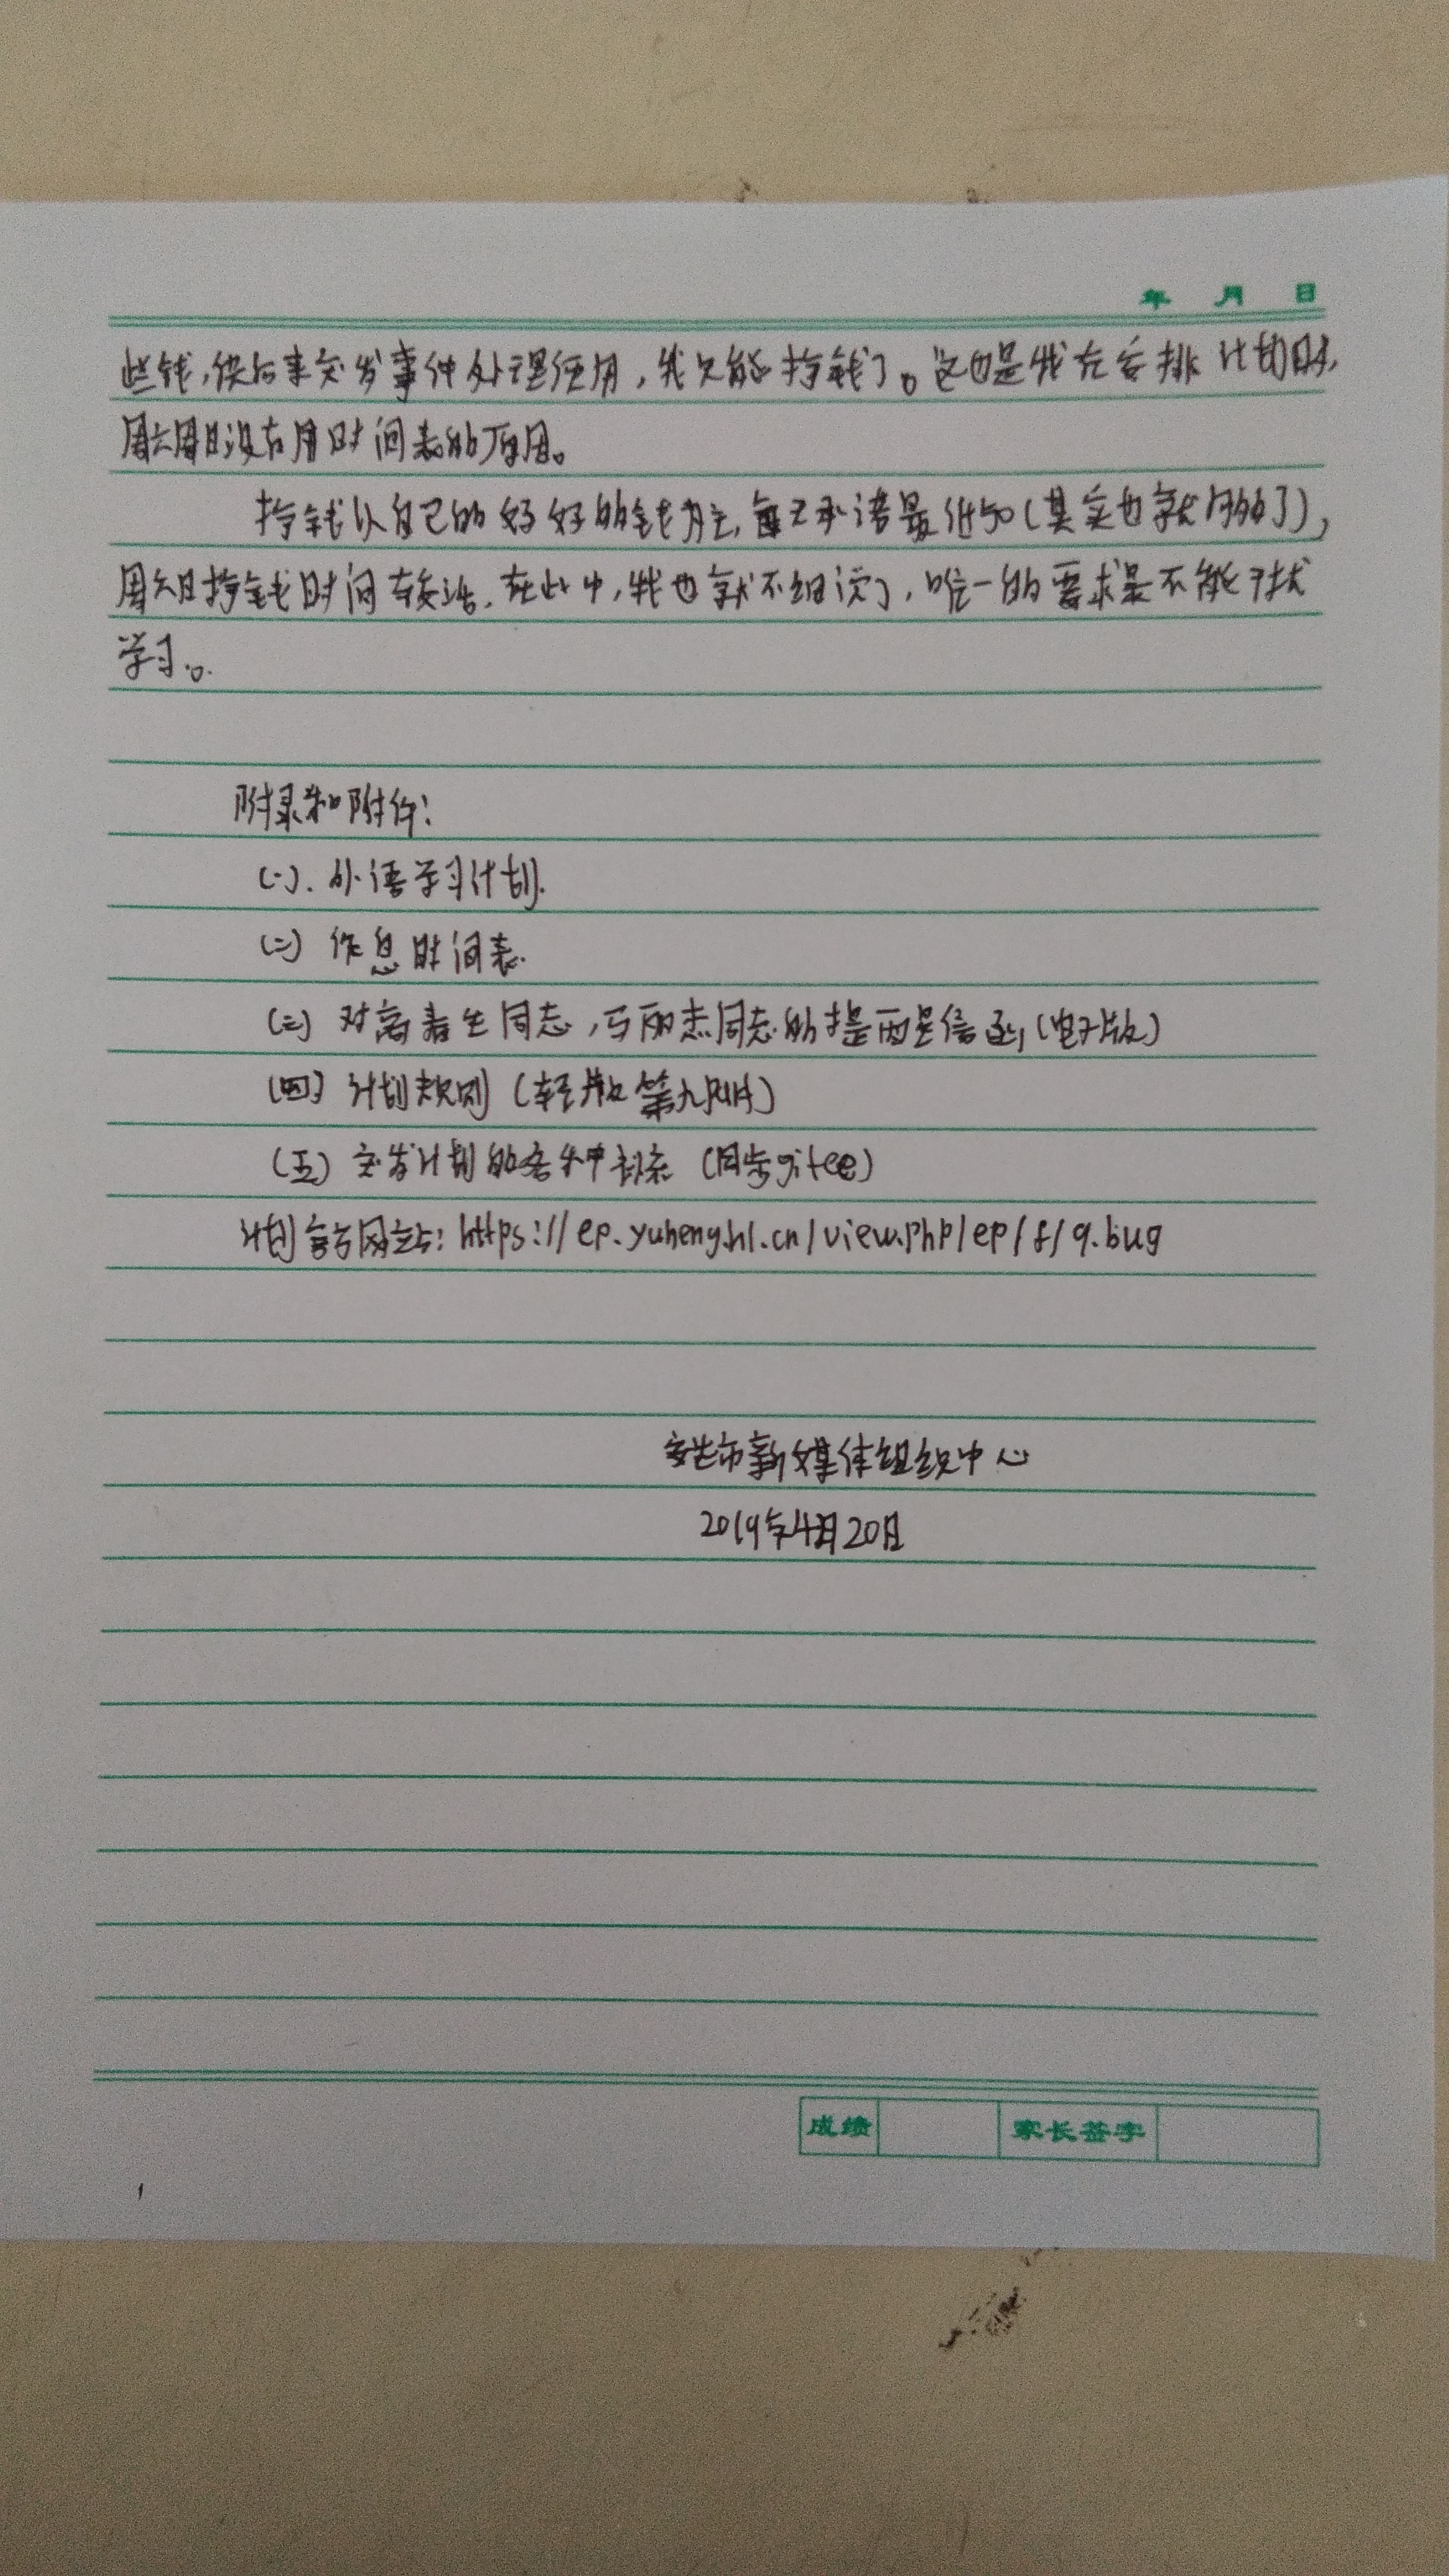 年 月 日
些钱,供后来突发事件处理使用,我只能挣钱了。这也是我在安排计划时,
周六周日没有用时间表的原因。
挣钱以自己的好好的钱为主,每天承诺最低50(其实也就够了),
周六日挣钱时间较活.在此中,我也就不细说了,唯一的要求是不能干扰
学习。
附录和附件:
(一).外语学习计划.
(二) 作息时间表.
(三) 对高春生同志,马丽杰同志的提两是信函(电子版)
(四) 计划规则(轻版第九附件)
(五) 突发计划的各种补充 (同步gitee)
计划 网站: https://ep.yuheng.hl.cn/view.php/ep/f/9.bug
安达市新媒体组织中心
2019年4月20日
成绩 家长签字